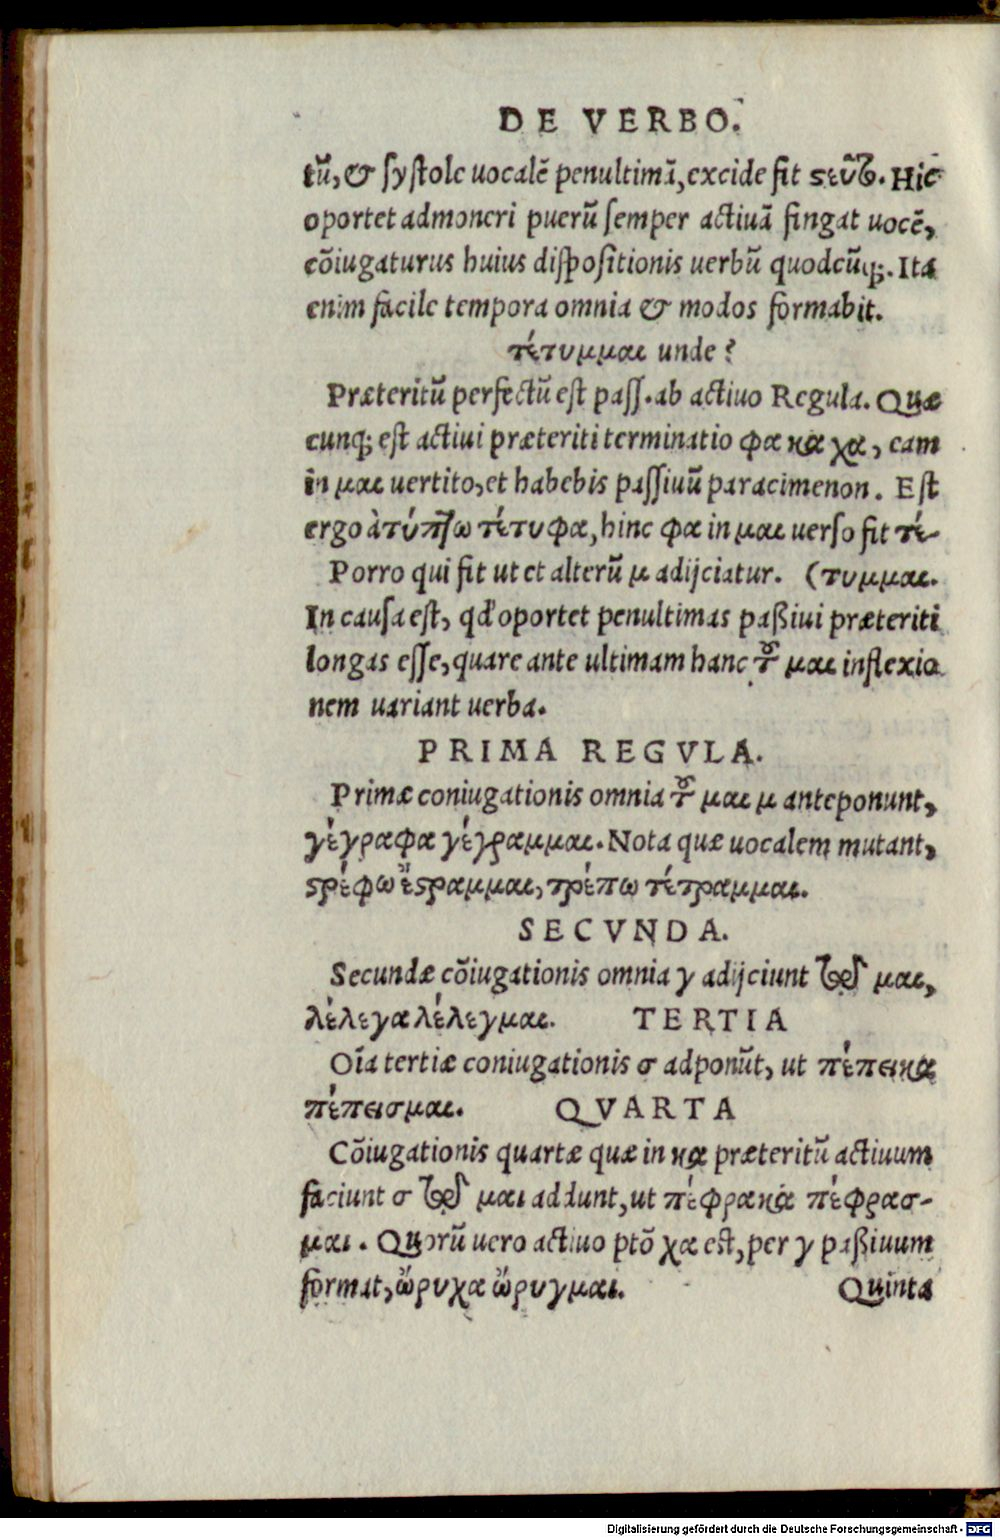 DE VERBO.
tū, & ſyſtole uocalē penultimā, excide fit Hic
oportet admoneri puerū ſemper actiuā fingat uocē,
cōiugaturus huius diſpoſitionis uerbū quodcūq;. Ita
enim facile tempora omnia & modos formabit.
τέτυμμαι unde?
Præteritū perfectū eſt paſſ. ab actiuo Regula. Quæ
cunq; eſt actiui præteriti terminatio φα κα χα, eam
in μαι uertito, et habebis paſſiuū paracimenon. Eſt
ergo à τύπτω τέτυφα, hinc φα in μαι uerſo fit τέ-
Porro qui fit ut et alterū μ adijciatur. (τυμμαι.
In cauſa eſt, qđ oportet penultimas paßiui præteriti
longas eſſe, quare ante ultimam hanc τ̄ μαι inflexio
nem uariant uerba.
PRIMA REGVLA.
Primæ coniugationis omnia τ̄ μαι μ anteponunt,
γέγραφα γέγραμμαι. Nota quæ uocalem mutant,
ϛρέφω ἔϛραμμαι, τρέπω τέτραμμαι.
SECVNDA.
Secundæ cōiugationis omnia γ adijciunt πρὸς μαι,
λέλεγα λέλεγμαι. TERTIA
Oīa tertiæ coniugationis σ adponūt, ut πέπεικα
πέπεισμαι. QVARTA
Cōiugationis quartæ quæ in κα præteritū actiuum
faciunt σ πρὸς μαι addunt, ut πέφρακα πέφρασ-
μαι. Quorū uero actiuo ptō χα eſt, per γ paßiuum
format, ὤρυχα ὤρυγμαι. Quinta
Digitalisierung gefördert durch die Deutsche Forschungsgemeinschaft - DFG